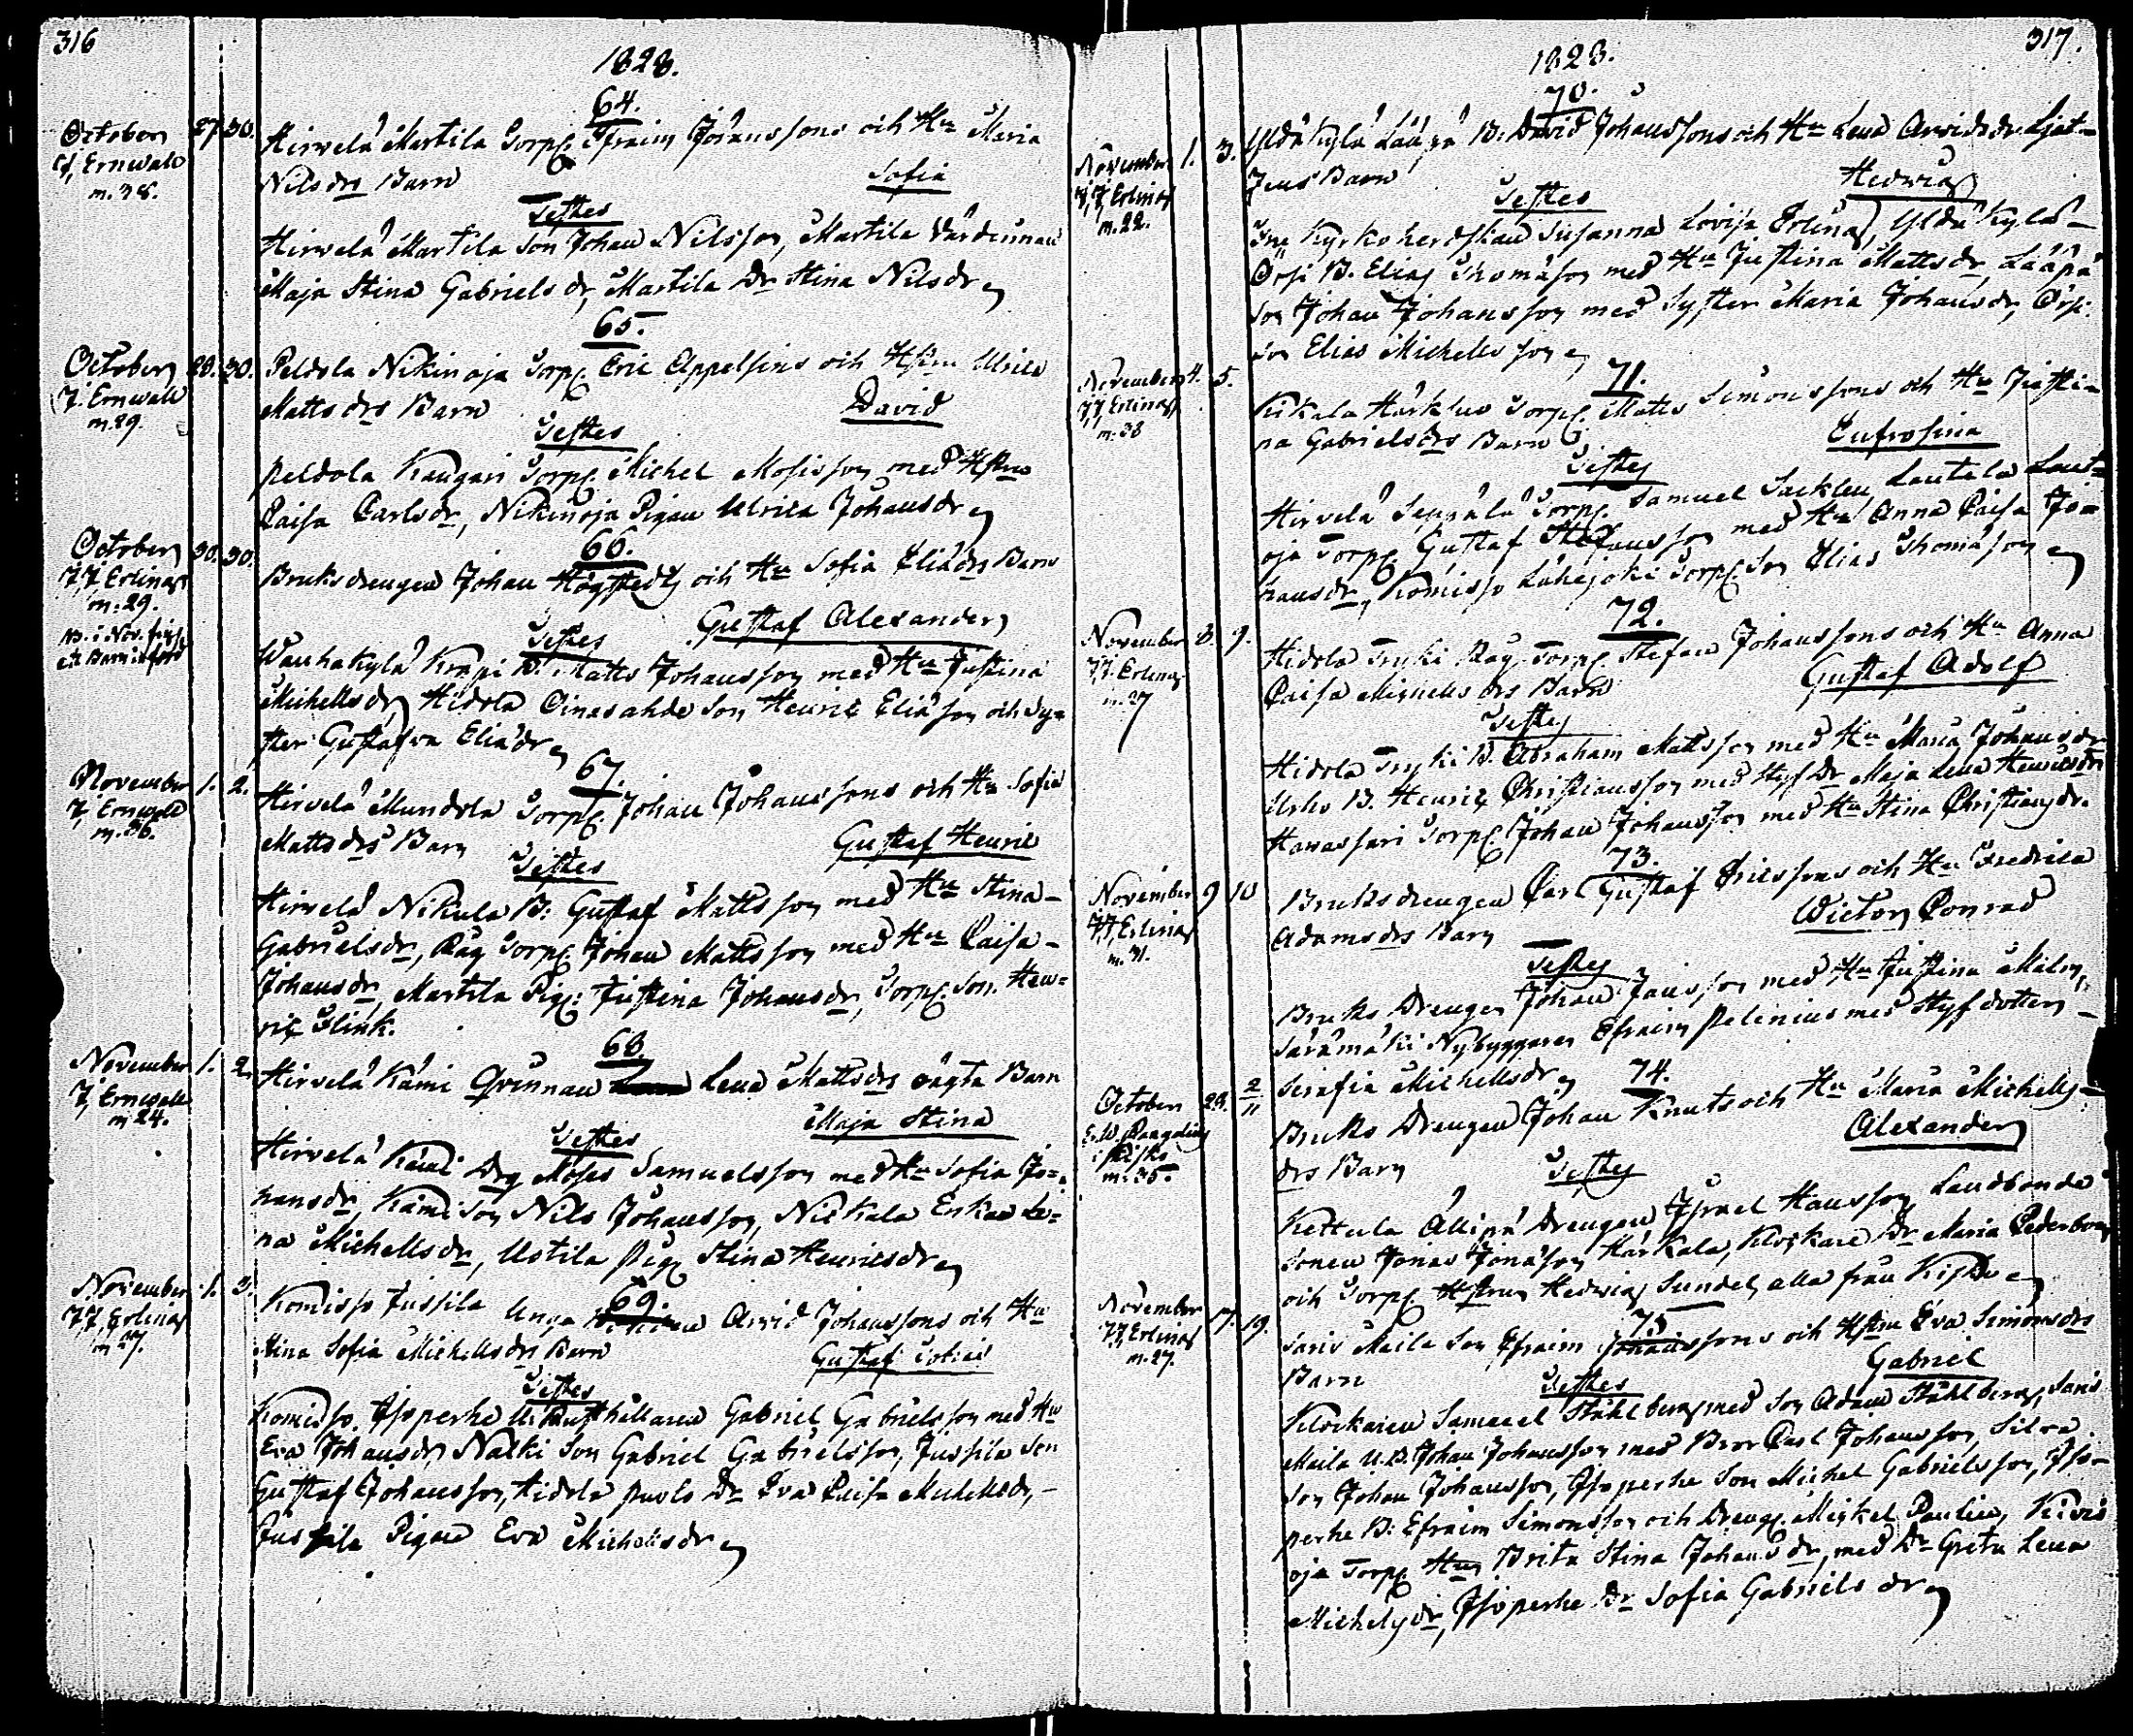 316
1828.
64.
October 27. 30. Hirvelä Martila Torp. Efraim Johanssons och Hu Maria
J. Ernwald
m. 38.
Nilsdrs Barn Sofia
Testes
Hirvelä Martila Son Johan Nilsson, Martila Värdinnan
Maja Stina Gabrielsdr, Martila Dr Stina Nilsdr
65.
October 28. 30. Peldola Nikinoja Torp. Eric Appelgrens och Hustru Ulrica
J. Ernwald
m. 29.
Mattsdrs Barn David
Testes
Peldola Kaugari Torp. Michel Mosisson med Hustru
Caisa Carlsdr, Nikinoja Pigan Ulrica Johansdr
66.
October 30. 30. Bruksdrengen Johan Högstedts och Hu Sofia Eliædrs Barn
J. J. Erling
m. 29.
Gustaf Alexander
Testes
Wanhakylä Krapi B. Matts Johansson med Hu Justina
Michelsdr Hidola Oinasahde Son Henric Eliæson och Sys-
ter Gustafva Eliædr
67.
November 1. 2. Hirvelä Mundola Torp. Johan Johanssons och Hu Sofia
J. Ernwald
m. 36.
Mattsdrs Barn Gustaf Henric
Testes
Hirvelä Nikula B: Gustaf Mattsson med Hu Stina
Gabrielsdr, Räg Torp. Johan Mattsson med Hu Caisa
Johansdr, Martila Pig: Justina Johansdr, Torp. Son. Hen-
ric Flink.
68.
November 1. 2. Hirvelä Kämi Qvinnan Lena Mattsdrs oägta Barn
J. Ernwald
m 24.
Maja Stina
Testes
Hirvelä Kämi Drg Moses Samuelsson med Hu Sofia Jo-
hansdr, Kämi Son Nils Johansson, Nickala Enkan Le-
na Michelsdr, Ustila Pig Stina Henricsdr
69.
November 1. 3. Komisso Jussila Unga Arvid Johanssons och Hu
J. J. Erling
m 27.
Stina Sofia Michelsdrs Barn Gustaf Tobias
Testes
Komisso Isoperhe Gabriel Gabrielsson med Hu
Eva Johansdr Nalki Son Gabriel Gabrielsson, Jussila Son
Gustaf Johansson, Hidola Pavola Dr Eva Caisa Michelsdr,
Jussila Pigan Eva Michelsdr
317.
1828.
70.
November 1. 3. Yldäkylä Lääpä B. David Johanssons och Hu Lena Arvidsdr
J. J. Erling
m. 22.
Barn Hedwig
Testes
Fru Kyrkoherdskan Susanna Lovisa Erling, Yldäkylä
Örsi B. Elias Thomæson med Hu Justina Mattsdr Lääpä
Son Johan Johansson med Syster Maria Johansdr, Örsi
Son Elias Michelsson
71.
November 4. 5. Kikala Härkälä Torp. Matts Simonssons och Hu Justi-
J. J. Erling
m. 38
na Gabrielsdrs Barn Eufrosina
Testes
Hirvelä Seppälä Torp. Samuel Sacklen, Lautela Laut-
oja Torp. Gustaf Stefansson med Hu Anna Caisa Jo-
hansdr, Komisso Lähejoki Torp. Son Elias Thomæson
72.
November 8. 9. Hidola Tryki Räg Torp. Stefan Johanssons och Hu Anna
J. J. Erling
m. 37
Caisa Michelsdrs Barn Gustaf Adolf
Testes
Hidola Tryki B. Abraham Mattsson med Hu Maria Johansdr
Urho B. Henric Christiansson med Styf Dr Maja Lena Henricsdr
Torp. Johan Johansson med Hu Stina Christiansdr.
73.
November 9 10 Bruksdrengen Carl Gustaf Ericssons och Hu Fredrica
J. J. Erling
m. 31.
Adamsdrs Barn Wictor Conrad
Testes
Bruks Drengen Johan Jansson med Hu Justina Malm,
Särämäki Nybyggaren Efraim Pelenius med Styfdotter
Serafia Michelsdr
74.
October 28. 2/11 Bruks Drengen Johan Knuts och Hu Maria Michels-
m. 35.
drs Barn Alexander
Testes
Kettula Drengen Israel Hansson Landbonde
Sonen Jonas Jonæson Härkälä, Klockare Dr Maria Cederberg
och Torp. Hustrun Hedwig Sundel, alla från Kisko
75
November 17. 19. Saris Maila Son Efraim Johanssons och Hustru Eva Simonsdrs
J. J. Erling
m. 27.
Barn Gabriel
Testes
Klockaren Samuel Ståhlberg med Son Adam Ståhlberg, Saris
Maila U. B. Johan Johansson med Bror Carl Johansson, Silva
Son Johan Johansson, Isoperhe Son Michel Gabrielsson, Iso-
perhe B: Efraim Simonsson och Dreng. Michel Paulin, Kivis
oja Torp. Hun Brita Stina Johansdr, med Dr Greta Lena
Michelsdr, Isoperhe Dr Sofia Gabrielsdr